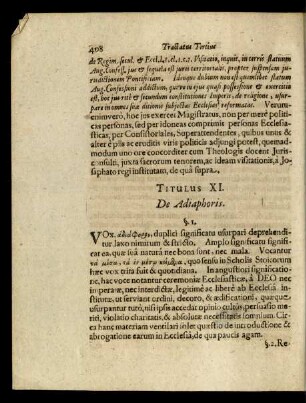 408 Tractatus Tertius
de Regim. secul. & Eccl. l. 2. cl. 1. c. 2. Visitatio, inquit, in terris statuum
Aug. Confess. jus & sequela est juris territorialis, propter suspensam ju-
risdictionem Pontificiam. Ideoque dubium non est quemlibet statum
Aug. Confessioni addictum, qui ex in ejus quasi possessione & exercitio
est, hoc jus ritè & secundum constitutiones Imperii, de religione, usurpa-
re in omnes suæ ditionis subjectas Ecclesias reformatas. Verum-
enimvero, hoc jus exercet Magistratus, non per merè politi-
cas personas, sed per idoneas comprimis personas Ecclesia-
sticas, per Consistoriales, Superattendentes, quibus unus &
alter è piis ac eruditis viris politicis adjungi potest, quemad-
modum uno ore concorditer cum Theologis docent Juris-
consulti, juxta sacrorum tenorem, ac ideam visitationis, à Jo-
saphato regi institutam, de quâ supra.
TITULUS XI.
De Adiaphoris.
§. 1.
VOx ἀδιάφορον, duplici significatu usurpari deprehendi-
tur, laxo nimirum & stricto. Amplo significatu signifi-
cat ea, quæ suâ naturâ nec bona sunt, nec mala. Vocantur
quo sensu in Scholis Stoicorum
hæc vox trita fuit & quotidiana. In angustiori significatio-
ne, hac voce notantur ceremoniæ Ecclesiasticæ, à DEO nec
imperatæ, nec interdictæ, legitimè ac liberè ab Ecclesia In-
stitutæ, ut serviant ordini, decoro, & ædificationi, quæ que
usurpantur tutò, nisi ipsis accedat opinio cultus, persuasio meri-
ti, violatio charitatis, & absolutæ necessitatis somnium. Cir-
ca hanc materiam ventilari solet quæstio de introductione &
abrogatione earum in Ecclesia, de qua paucis agam.
§. 2. Re-